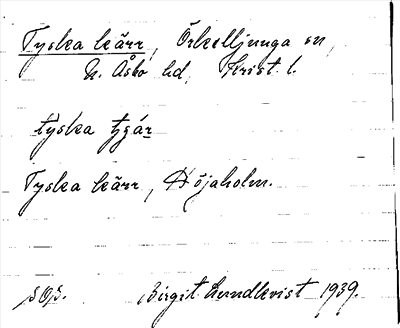 Tyska kärr, Örkelljunga sn,
N. Åsbo hd, Krist. l.
tyska
Tyska kärr, Höjaholm.
Birgit Lundkvist 1939.